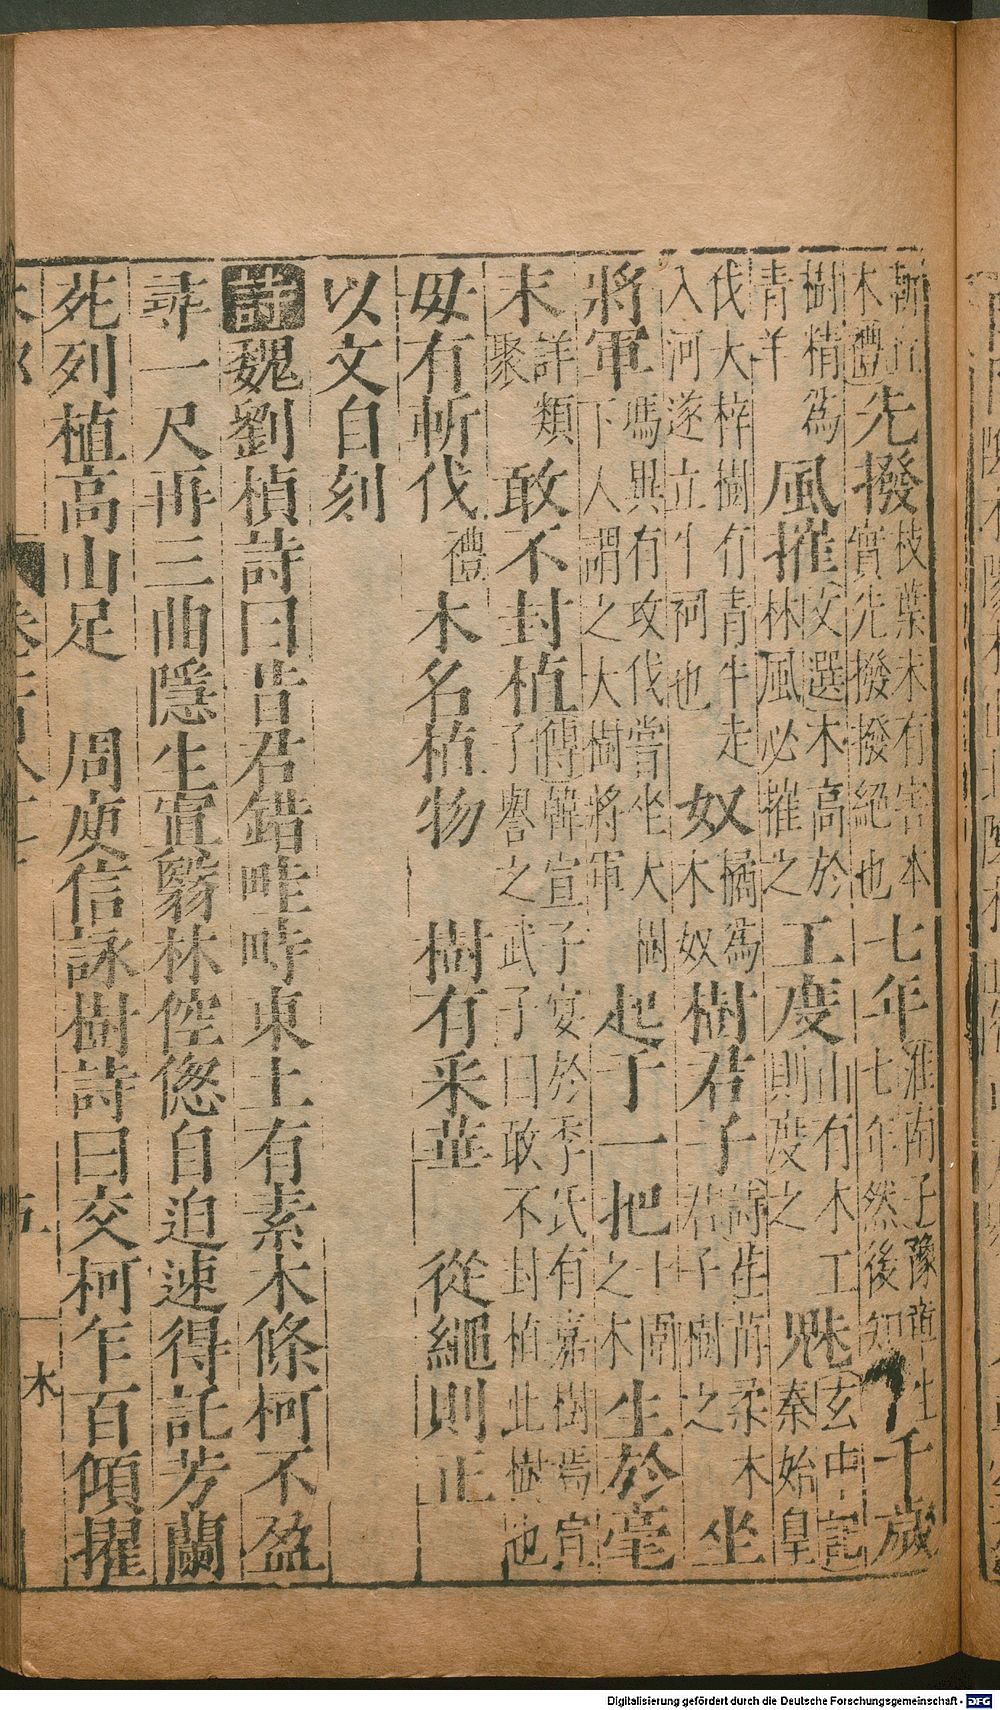 斬行木禮先撥枝葉未有害本實先撥撥絕也七年淮南子豫章生七年然後知千歲
樹精爲青羊風摧文選木高於林風必摧之工度山有木工則度之魁玄中記秦始皇
伐大梓樹有青牛走入河遂立牛祠也奴橘爲木奴樹君子詩荏苒柔木君子樹之坐
將軍馮異有攻伐嘗坐大樹下人謂之大樹將軍起于一把十圍之木生於毫
末詳類聚敢不封植傳韓宣子宴於季氏有嘉樹焉宣子譽之武子曰敢不封植此樹也
毋有斬伐禮木名植物樹有采華從繩則正
以文自刻
詩魏劉楨詩曰昔君錯畦畤東土有素木條柯不盈
尋一尺再三曲隱生寘翳林倥傯自迫速得託芳蘭
苑列植高山足周庾信詠樹詩曰交柯乍百頃擢
木
Digitalisierung gefördert durch die Deutsche Forschungsgemeinschaft - DFG